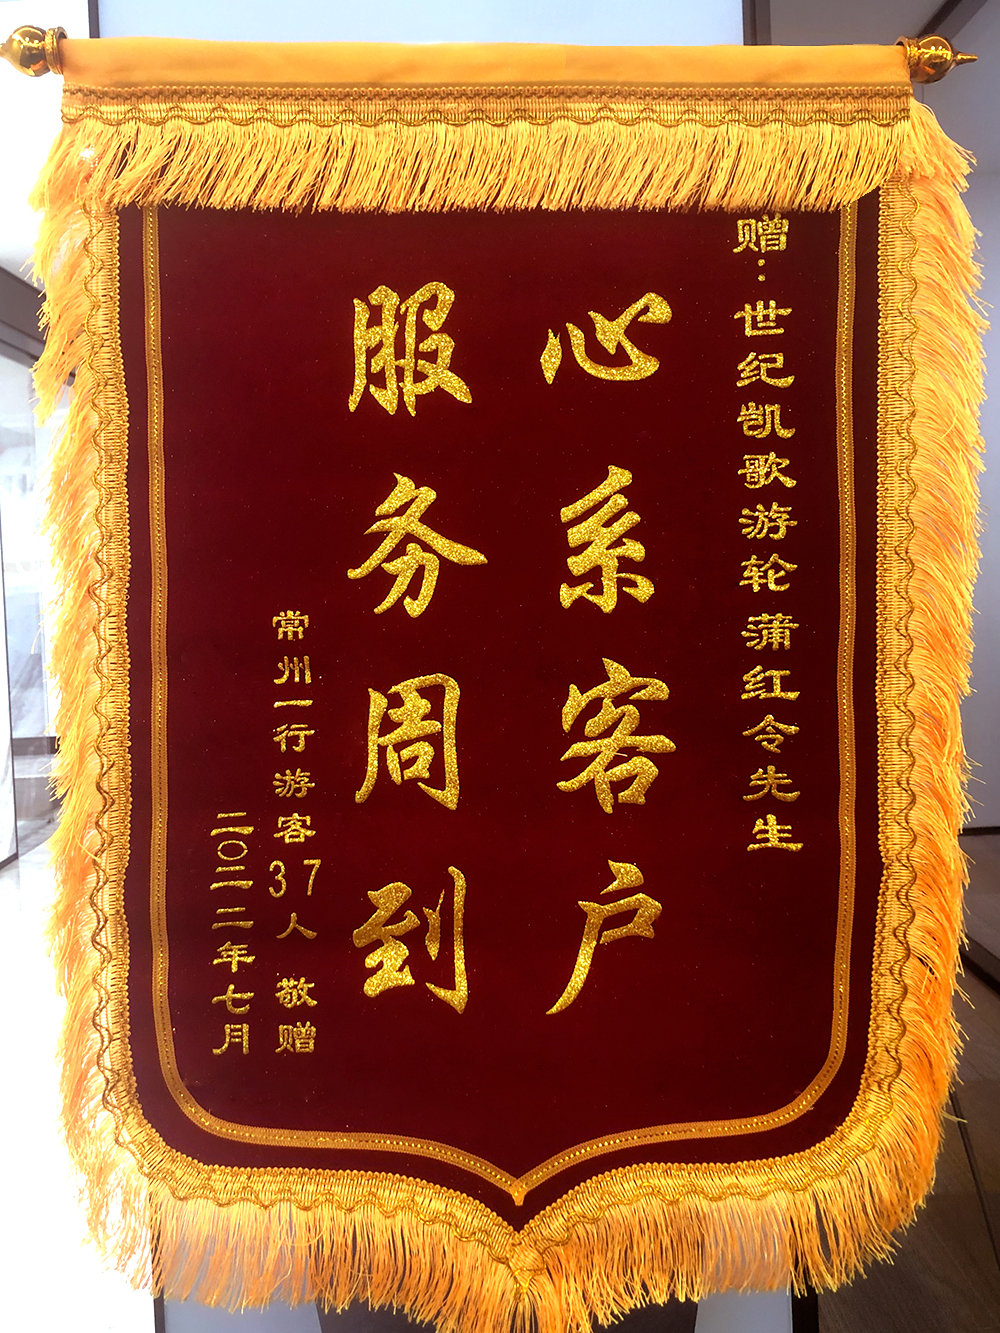 赠：世纪凯歌游轮蒲红令先生
心系客户
服务周到
常州一行游客37人 敬赠
二〇二二年七月